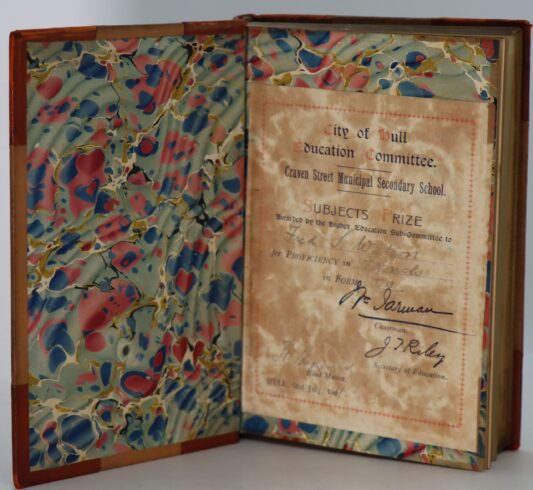 City of Hull
Education Committee.
Craven Street Municipal Secondary School.
SUBJECTS PRIZE
Awarded by the Higher Education Sub-Committee to
for PROFICIENCY in French
in FORM
Jarman
Chairman.
J T Riley
Secretary of Education.
Head Master.
HULL, 31st July,